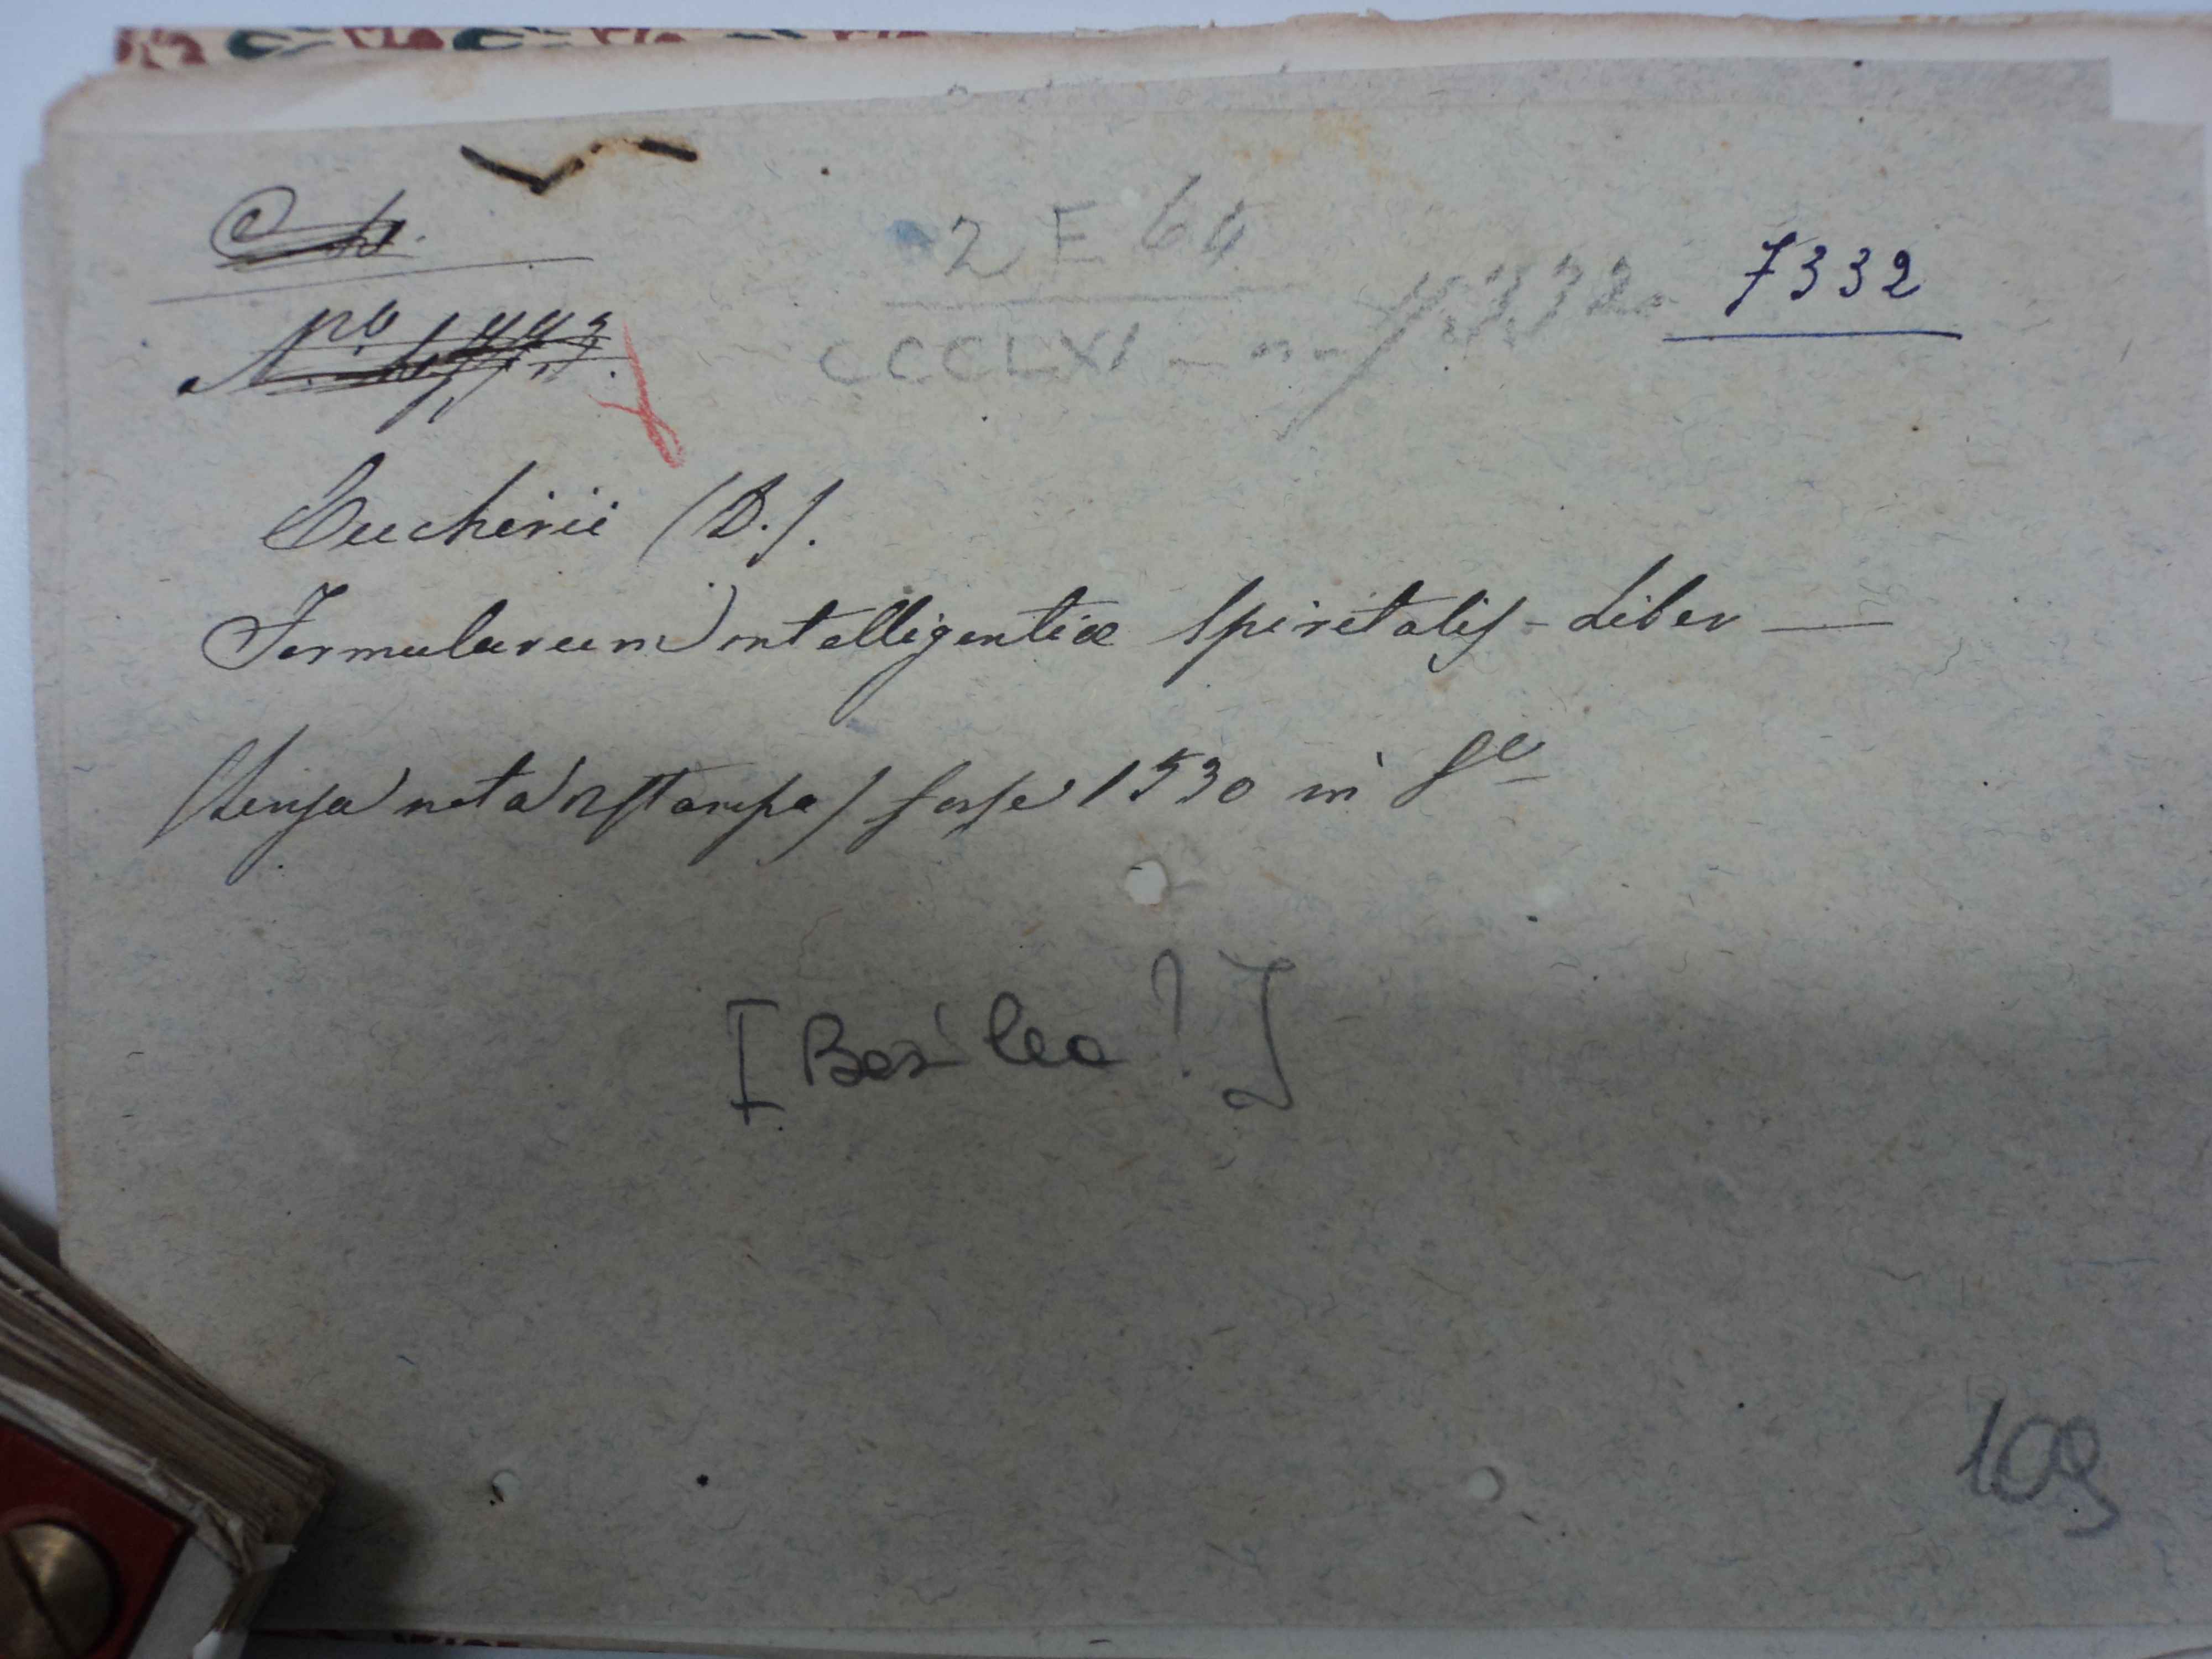 2 E 64
CCCLXI - n- 7332
7332
Eucherii (D.).
Formularum intelligentiæ Spiritalis - Liber —
(senza nota di stampa) forse 1530 in 8º
[Basilea?]
109